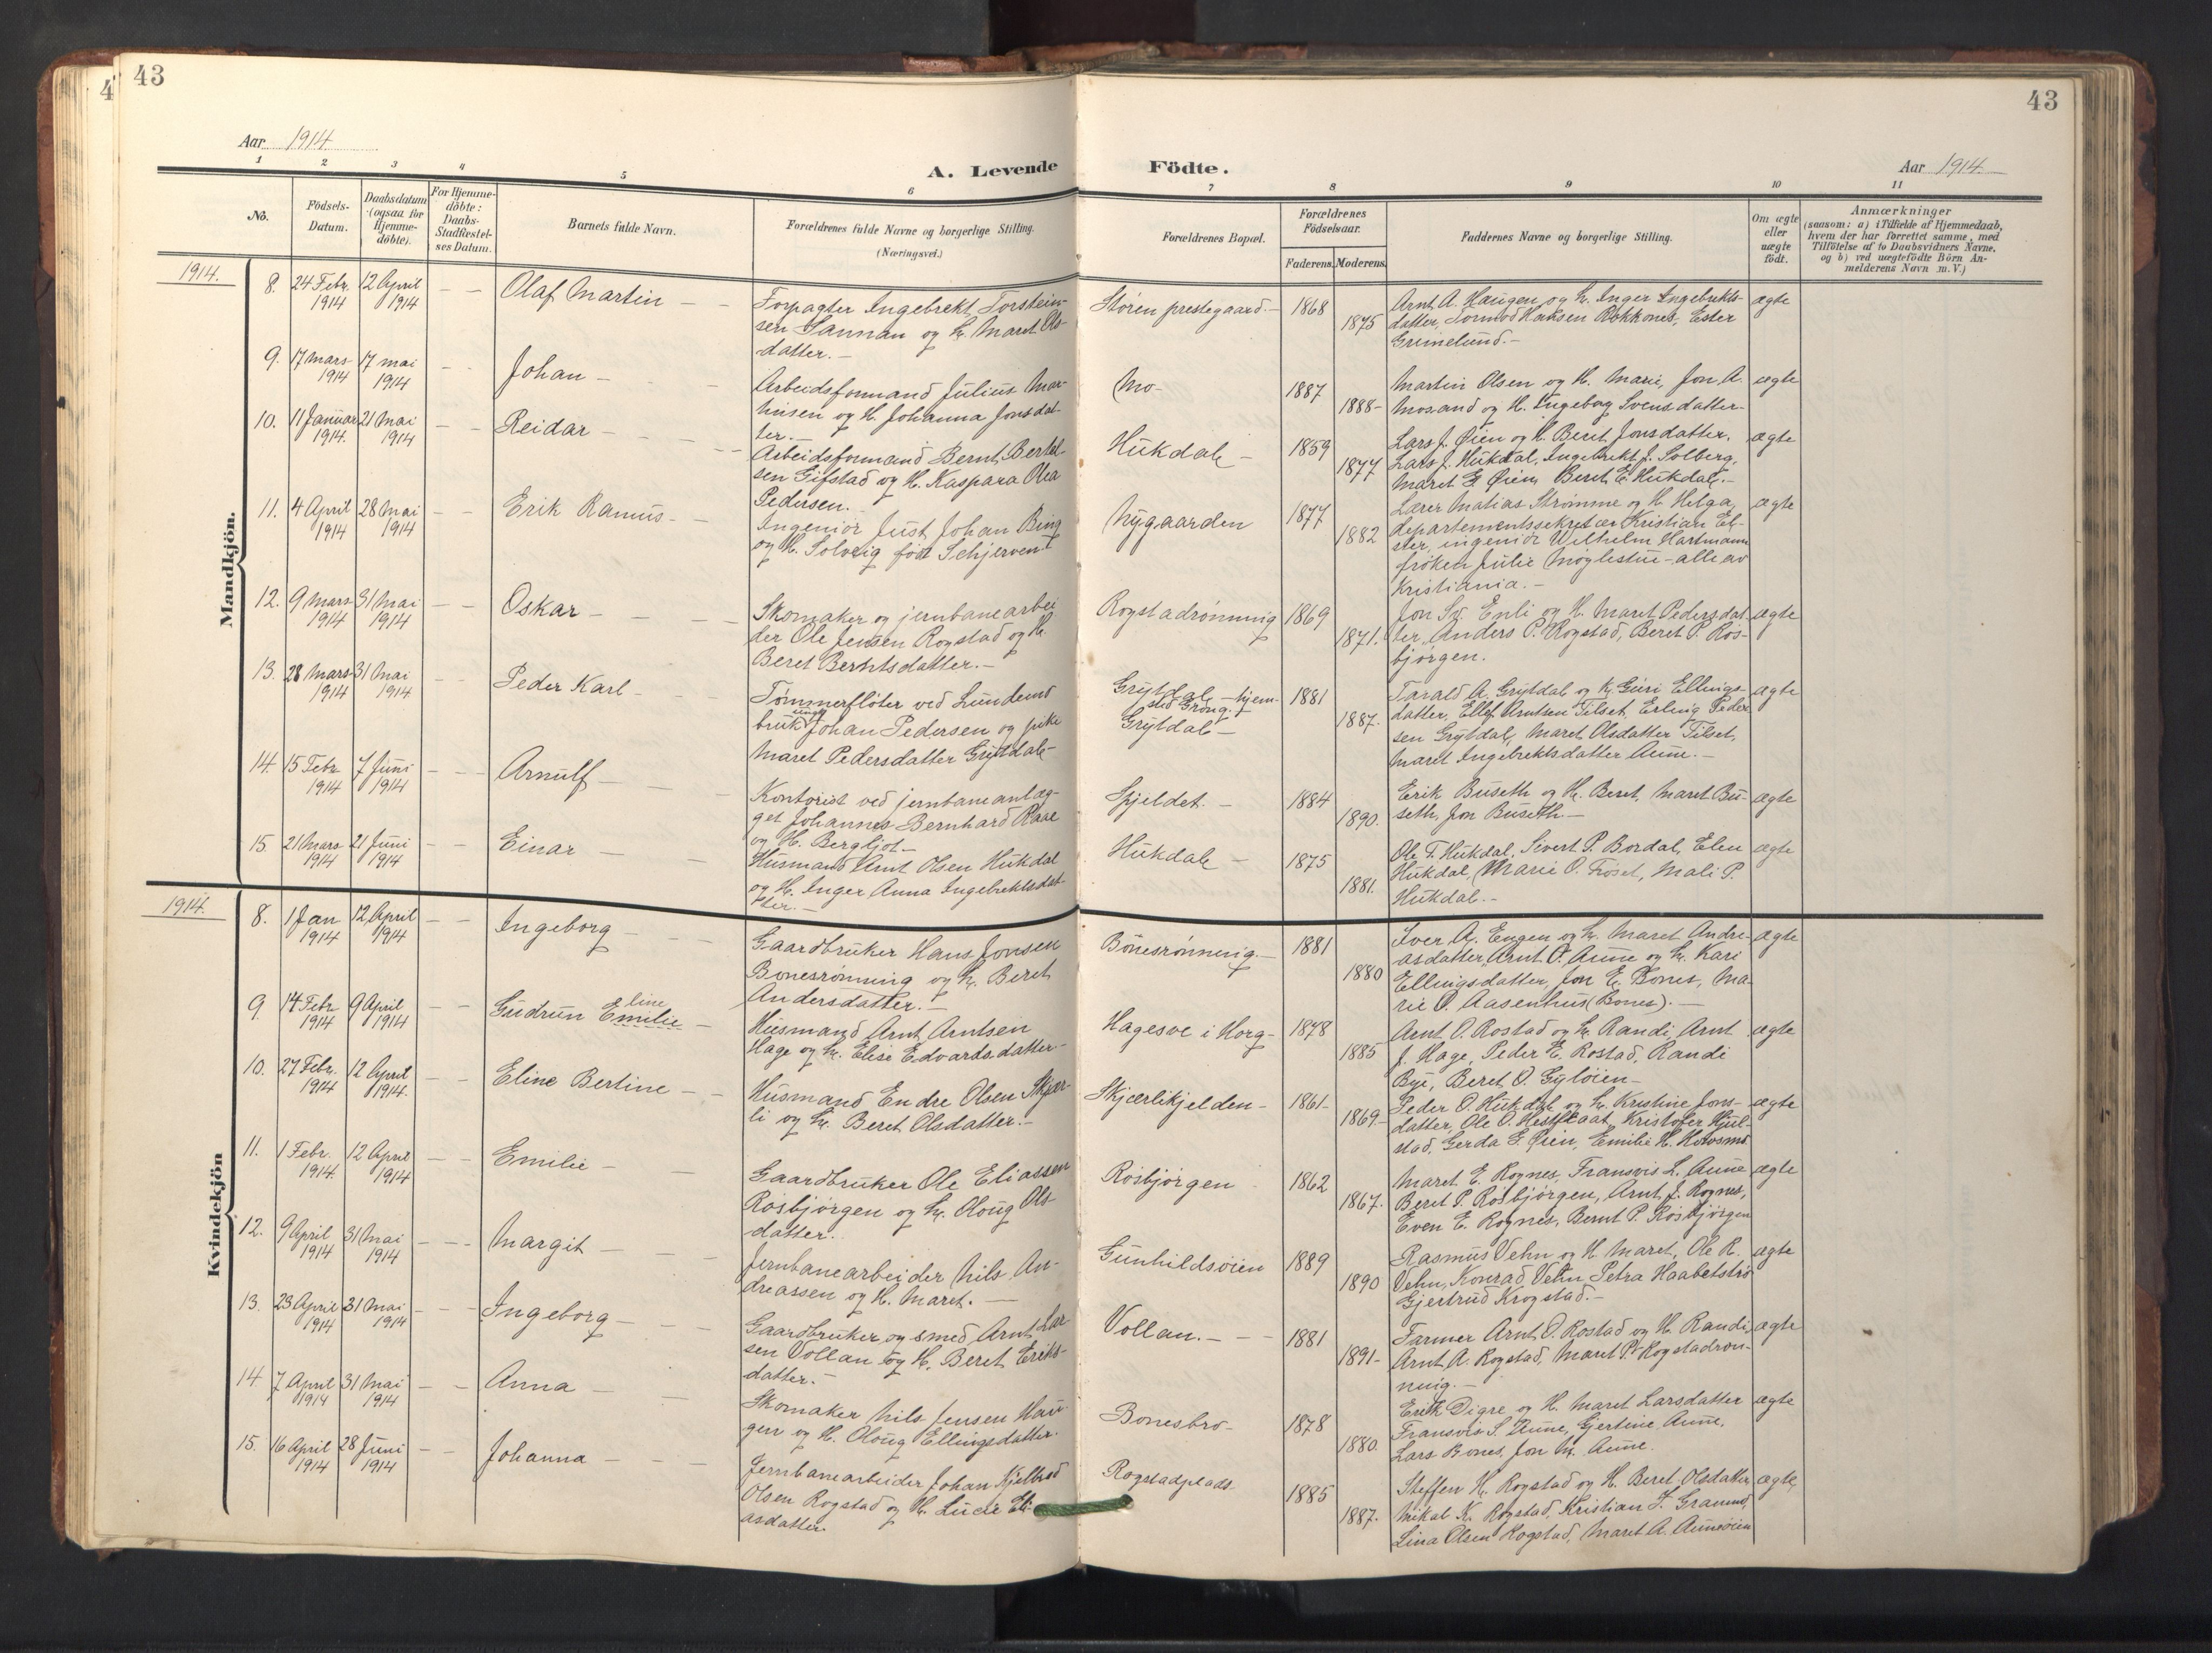 43
43
4
Aar 1914
A. Levende Födte.
Aar 1914.
1 2 3 4 5 6 7 8 9 10 11
No.
Födsels-Datum.
Daabsdatum (ogsaa for Hjemme-döbte).
For Hjemme-döbte: Daabs-Stadfæstel-ses Datum.
Barnets fulde Navn.
Forældrenes fulde Navne og borgerlige Stilling.
(Næringsvei.)
Forældrenes Bopæl.
Forældrenes Födselsaar.
Faderens. Moderens.
Faddernes Navne og borgerlige Stilling.
Om ægte eller uægte födt.
Anmærkninger
(saasom: a) i Tilfælde af Hjemmedaab,
hvem der har forrettet samme, med
Tilföielse af to Daabsvidners Navne.
og b) ved uægtefödte Börn An-
melderens Navn m. V.)
Mandkjön.
1914.
8. 24 Febr. 1914 12 April 1914 – – Olaf Martin – –
Forpagter Ingebrekt Torstein-
sen Sannan og H. Maret Ols-
datter. –
Stören prestegaard. – 1868 1875
Arnt A. Haugen og H. Inger Ingebrekts-
datter, Tormod Haksen Rokkones, Ester
Grimelund. –
ægte
9. 17 Mars 1914 17 mai 1914 – – Johan –
Arbeidsformand Julius Mar-
tinsen og H. Johanna Jonsdat-
ter. –
Mo – 1887 1888 –
Martin Olsen og H. Marie, Jon A.
Mosand og H. Ingeborg Svensdatter.
ægte
10. 11 Januar 1914. 21 Mai 1914 – – Reidar –
Arbeidsformand Bernt Bertel-
sen Gifstad og H. Kaspara Olea
Pedersen.
Hukdal – 1859 1877
Lars J. Øien og H. Beret Jonsdatter.
Lars J. Hukdal, Ingebrekt J. Solberg,
Maret E. Øien, Beret E. Hukdal. –
ægte
11. 4 April 1914 28 Mai 1914 – – Erik Ramus –
Ingeniör Just Johan Bing
og H. Solveig födt Schjerven
Nygaarden 1877 1882
Lærer Matias Strømme og H. Helga,
departementssekretær Kristian El-
ster, ingeniör Wilhelm Hartmann
fröken Julie Möglestue – alle av
Kristiania. –
ægte
12. 9 Mars 1914 31 Mai 1914 – – Oskar –
Skomaker og jernbanearbei
der Ole Jensen Rogstad og H.
Beret Berntsdatter. –
Rogstadrönning 1869 1871.
Jon Sv. Enli og H. Maret Pedersdat
ter, Anders P. Rogstad, Beret P. Ros-
björgen.
ægte
13. 28 Mars 1914 31 Mai 1914 – – Peder Karl –
Tømmerflöter ved Lundemo
bruk ungk Johan Pedersen og pike
Maret Pedersdatter Grytdal –
Grytdal – hjem-
sted Grong.
Grytdal –
1881 1887.
Tarald A. Grytdal og H. Guri Ellings-
datter, Ellef Arntsen Tilset, Erling Peder
sen Grytdal, Maret Olsdatter Tilset,
Maret Ingebrektsdatter Aune. –
ægte
14. 15 Febr 1914 7 Juni 1914 – – Arnulf –
Kontorist ved jernbaneanlæg-
get Johannes Bernhard Raae
og H. Bergljot –
Spjeldet. – 1884 1890.
Erik Buseth og H. Beret, Maret Bu-
seth, Jon Buseth –
ægte
15. 21 Mars 1914 21 Juni 1914 – – Einar –
Husmand Arnt Olsen Hukdal
og H. Inger Anna Ingebrektsdat
ter. –
Hukdal – 1875 1881.
Ole T. Hukdal, Sivert P. Bordal, Elen
Hukdal, Marie O. Fröset, Mali P.
Hukdal. –
ægte
Kvindekjön
1914.
8. 1 Jan 1914 12 April 1914 – – Ingeborg –
Gaardbruker Hans Jonsen
Bonesrönning og H. Beret
Andersdatter. –
Bönesrönning – 1881 1880
Iver A. Engen og H. Maret Andre-
asdatter, Arnt O. Aune og H. Kari
Ellingsdatter, Jon E. Bones, Ma-
rie O. Aasenhus (Bones). –
ægte
9. 14 Febr 1914 9 April 1914 – – Gudrun Emilie line –
Husmand Arnt Arntsen
Hage og H. Elise Edvardsdatter –
Hagesve i Horg – 1878 1885
Arnt O. Rostad og H. Randi, Arnt
J. Hage, Peder E. Rostad, Randi
Bye, Beret O. Gylöien –
ægte
10. 27 Febr. 1914 12 April 1914. – – Eline Bertine –
Husmand Endre Olsen Skjær-
li og H. Beret Olsdatter. –
Skjærlikjelden – 1861 – 1869 –
Peder O. Hukdal og H. Kristine Jons-
datter, Ole O. Hestflaat, Kristofer Hjul-
stad, Gerda E. Øien, Emilie H.
ægte
11. 1 Febr. 1914 12 April 1914 – – Emilie –
Gaardbruker Ole Eliassen
Rosbjörgen og H. Oloug Ols-
datter.
Rosbjörgen 1862 1867.
Maret E. Rognes, Fransvis L. Aune
Beret P. Rosbjörgen, Arnt J. Rognes,
Even E. Rognes, Bernt P. Rosbjörgen
ægte
12. 9 April 1914 31 Mai 1914 – – Margit –
Jernbanearbeider Nils An-
dreassen og H. Maret. –
Gunhildsöien 1889 1890
Rasmus Vehn og H. Maret, Ole R.
Vehn, Konrad Vehn, Petra Haabetströ
Gjertrud Krogstad. –
ægte
13. 23 April 1914 31 Mai 1914 – – Ingeborg –
Gaardbruker og smed Arnt Lar
sen Vollan og H. Beret Eriks-
datter. –
Vollan. – 1881 1891 –
Farmer Arnt O. Rostad og H. Randi,
Arnt A. Rogstad, Maret P. Rogstadrön-
ning. –
ægte
14 7 April 1914 31 Mai 1914 – – Anna –
Skomaker Nils Jensen Hau-
gen og H. Oloug Ellingsdatter.
Bonesbro – 1878 1880.
Erik Digre og H. Maret Larsdatter
Fransvis S. Aune, Gjertine Aune,
Lars Bones, Jon H. Aune.
ægte
15. 16 April 1914 28 Juni 1914 – – Johanna –
Jernbanearbeider Johan Kjelbred
Olsen Rogstad og H. Lucie Eli-
asdatter.
Rogstadplads 1885 1887.
Steffen H. Rogstad og H. Beret Olsdatter,
Mikal K. Rogstad, Kristian J. Gramo,
Lina Olsen Rogstad, Maret A. Aunöien
ægte